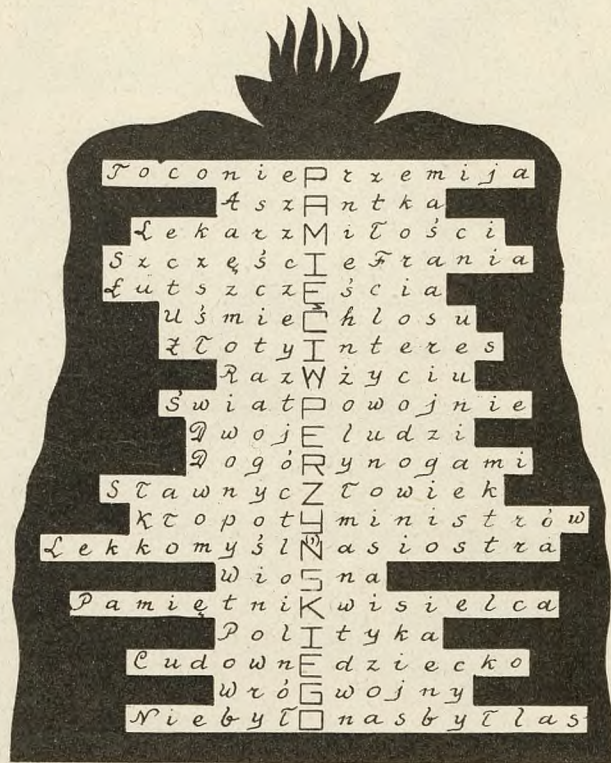 ToconiePrzemija
AszAntka
LekarzMiłości
SzczęścIeFrania
ŁutszczĘścia
UśmieChlosu
ZłotyInteres
RazWżyciu
ŚwiatPowojnie
DwojEludzi
DogóRynogami
SławnycZłowiek
KłopotYministrów
LekkomyślŃasiostra
WioSna
PamiętniKwisielca
PolItyka
CudownEdziecko
WróGwojny
NiebyłOnasbyłlas